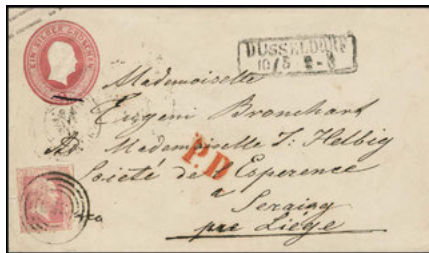 EIN SILBER GROSCHEN
DÜSSELDORF
10/5
Mademoiselle
Eugeni Bronchart
Mademoiselle T: Helbig
P.D
Société de l'Esperence
a
Seraing
pre Liége